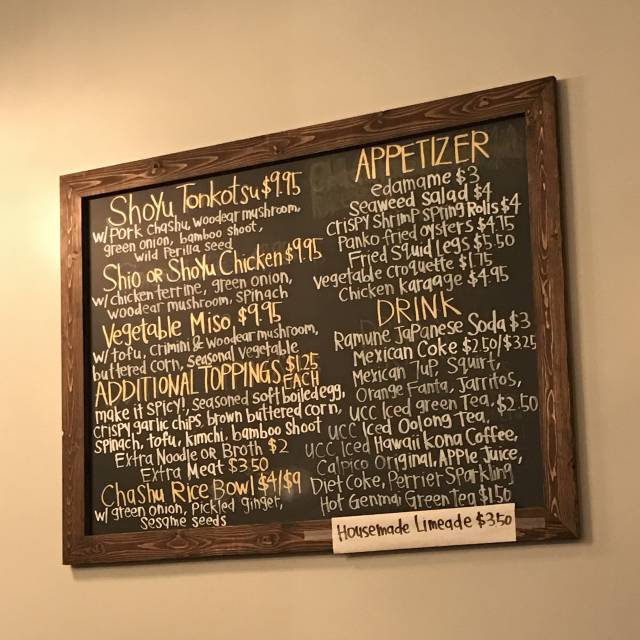 Shoyu Tonkotsu $9.95
w/ Pork Chashu, woodear mushroom,
green onion, bamboo shoot,
wild Perilla seed
Shio or Shoyu Chicken $9.95
w/ chicken terrine, green onion,
woodear mushroom, spinach
Vegetable Miso, $9.95
w/ tofu, crimini & woodear mushroom,
buttered corn, seasonal vegetable
ADDITIONAL TOPPINGS $1.25 EACH
make it spicy!, seasoned soft boiled egg,
crispy garlic chips, brown buttered corn,
spinach, tofu, kimchi, bamboo shoot
Extra Noodle or Broth $2
Extra Meat $3.50
Chashu Rice Bowl $4/$9
w/ green onion, pickled ginger,
sesame seeds
APPETIZER
edamame $3
seaweed salad $4
crispy shrimp spring Rolls $4
Panko fried oysters $4.75
Fried squid legs $5.50
vegetable croquette $1.75
Chicken karaage $4.95
DRINK
Ramune Japanese Soda $3
Mexican Coke $2.50/$3.25
Mexican 7up, Squirt,
Orange Fanta, Jarritos,
UCC Iced green Tea, $2.50
UCC Iced Oolong Tea,
UCC Iced Hawaii Kona Coffee,
Calpico Original, Apple Juice,
Diet Coke, Perrier Sparkling
Hot Genmai Green tea $1.50
Housemade Limeade $3.50